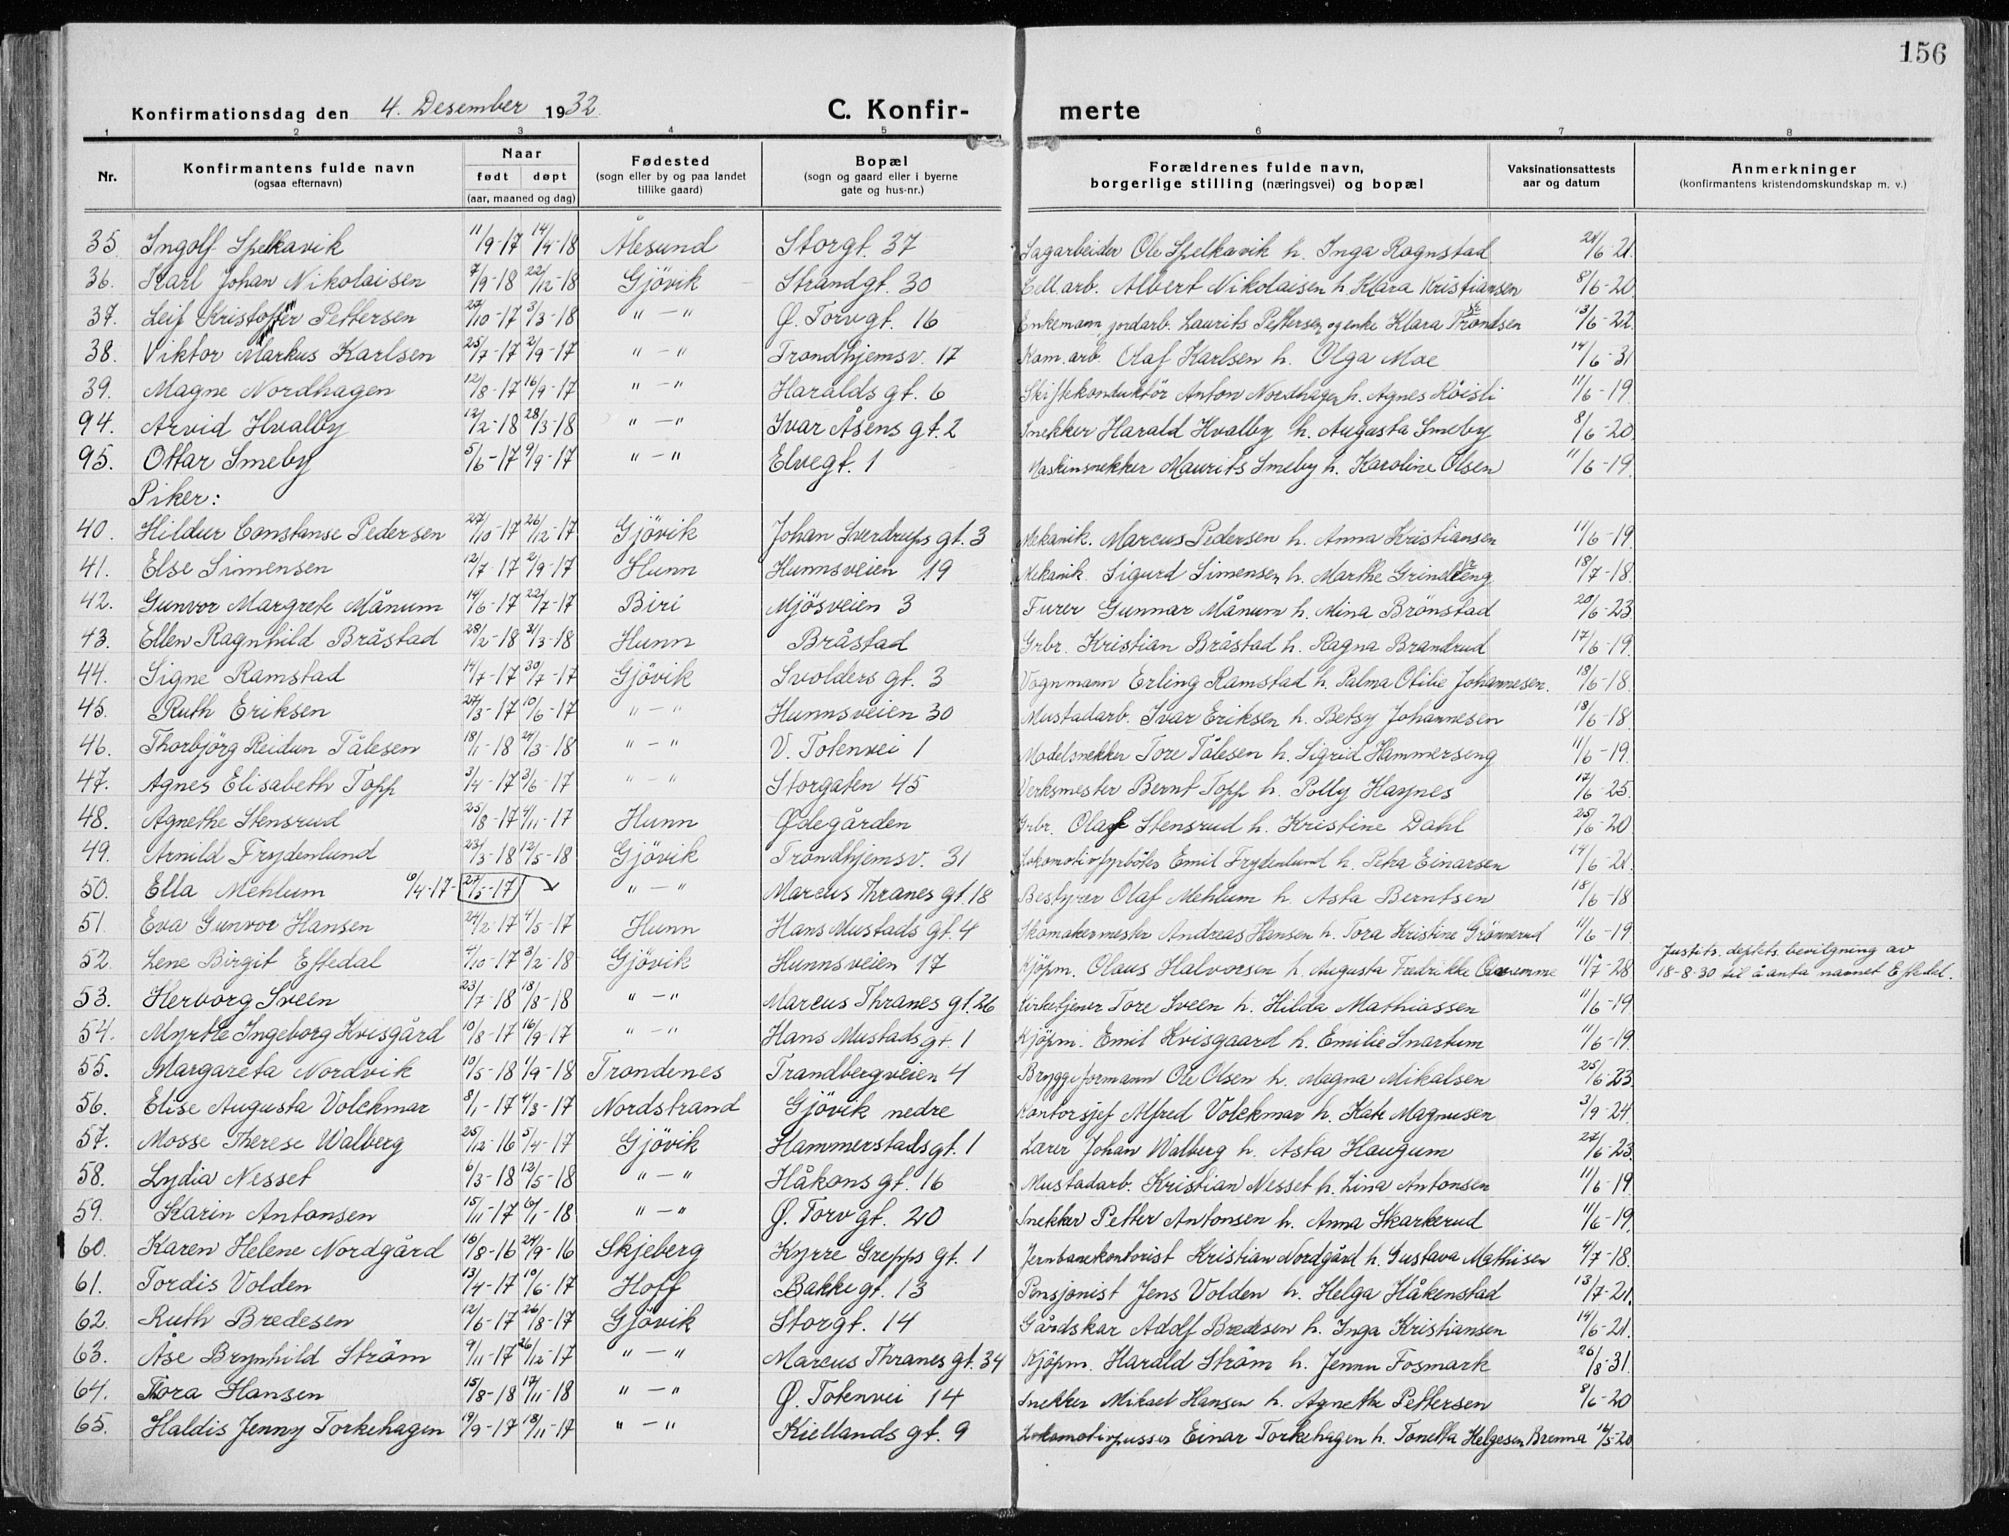 156
Konfirmationsdag den 4. Desember 1932. C. Konfir- merte
1 2 3 4 5 6 7 8
Nr. Konfirmantens fulde navn (ogsaa efternavn) Naar født døpt (aar, maaned og dag) Fødested (sogn eller by og paa landet tillike gaard) Bopæl (sogn og gaard eller i byerne gate og hus-nr.) Forældrenes fulde navn, borgerlige stilling (næringsvei) og bopæl Vaksinationsattests aar og datum Anmerkninger (konfirmantens kristendomskundskap m. v.)
35. Ingolf Spelkavik 11/9-17 14/4-18 Ålesund Storgt. 37 Sagarbeider Ole Spelkavik h. Inga Rognstad 21/6-21.
36. Karl Johan Nikolaisen 7/9-18 22/12-18 Gjövik Strandgt. 30 Cell.arb. Albert Nikolaisen h. Klara Kristiansen 8/6-20.
37. Leif Kristoffer Pettersen 27/10-17 3/3-18 " - " Ø. Torvgt. 16 Enkemann, jordarb. Laurits Pettersen og enke Klara Trondsen 13/6-22.
38. Viktor Markus Karlsen 25/7-17 2/9-17 " - " Trondhjemsv. 17 Kom.arb. Olaf Karlsen h. Olga Moe 14/6-31
39. Magne Nordhagen 12/8-17 16/9-17 " - " Haralds gt. 6 Skiftekonduktör Anton Nordhagen h. Agnes Röisli 11/6-19.
94. Arvid Hvalby 12/2-18 28/3-18 " - " Ivar Åsens gt. 2 Snekker Harald Hvalby h. Augusta Smeby 8/6-20.
95. Ottar Smeby 5/6-17 9/9-17 " - " Elvegt. 1 Maskinsnekker Maurits Smeby h. Karoline Olsen 11/6-19.
Piker:
40. Hildur Constanse Pedersen 27/10-17 26/12-17 Gjövik Johan Sverdrups gt. 3 Mekanik. Marcus Pedersen h. Anna Kristiansen 11/6-19.
41. Else Simensen 12/7-17 2/9-17 Hunn Hunnsveien 19 Mekanik. Sigurd Simensen h. Marthe 18/7-18.
42. Gunvor Margrete Månum 14/6-17 22/7-17 Biri Mjösveien 3 Furer Gunnar Månum h. Mina Brönstad 20/6-23
43. Ellen Ragnhild Bråstad 28/2-18 31/3-18 Hunn Bråstad Grbr. Kristian Bråstad h. Ragna Brandrud 17/6-19.
44. Signe Ramstad 14/7-17 30/7-17 Gjövik Svolders gt. 3 Vognmann Erling Ramstad h. Palma Otilie Johannesen. 18/6-18.
45. Ruth Eriksen 27/3-17 10/6-17 " - " Hunnsveien 30 Mustadarb. Ivar Eriksen h. Betsy Johannesen 18/6-18
46. Thorbjörg Reidun Tålesen 18/1-18 24/3-18 " - " V. Totenvei 1 Modelsnekker Tore Tålesen h. Sigrid Hammerseng 11/6-19.
47. Agnes Elisabeth Topp 3/4-17 3/6-17 " - " Storgaten 45 Verksmester Bernt Topp h. Polly Haynes 17/6-25.
48. Agnethe Stensrud 25/8-17 4/11-17 Hunn Ødegården Grbr. Olaf Stensrud h. Kristine Dahl 25/6-20
49. Arnild Frydenlund 23/3-18 12/5-18 Gjövik Trondhjemsv. 31 Lokomotivfyrböter Emil Frydenlund h. Petra Einarsen 14/6-21.
50. Ella Mehlum 6/4-17- 27/5-17 " - " Marcus Thranes gt. 18 Bestyrer Olaf Mehlum h. Asta Berntsen 18/6-18
51. Eva Gunvor Hansen 24/2-17 4/5-17 Hunn Hans Mustads gt. 4 Skomakermester Andreas Hansen h. Tora Kristine Grönnerud 11/6-19
52. Lene Birgit Eftedal 4/10-17 3/2-18 Gjövik Hunnsveien 17 Kjöpm. Olaus Halvorsen h. Augusta Fredrikke 11/7-28 Justits. deptets. bevilgning av
18-8-30 til å anta navnet Eftedal.
53. Herborg Sveen 23/7-18 18/8-18 " - " Marcus Thranes gt. 26 Kirketjener Tore Sveen h. Hilda Mathiassen 11/6-19
54. Myrtle Ingeborg Kvisgård 10/8-17 16/9-17 " - " Hans Mustads gt. 1 Kjöpm. Emil Kvisgaard h. Emilie Snartum 11/6-19.
55. Margareta Nordvik 10/5-18 1/9-18 Trondenes Trandbergveien 4 Bryggeformann Ole Olsen h. Magna Mikalsen 25/6-23
56. Elise Augusta Volckmar 8/1-17 4/3-17 Nordstrand Gjövik nedre Kontorsjef Alfred Volckmar h. Kate Magnusen 3/9-24.
57. Mosse Therese Walberg 25/12-16 5/4-17 Gjövik Hammerstadsgt. 1 Lærer Johan Walberg h. Asta Haugum 27/6-23
58. Lydia Nesset 6/3-18 12/5-18 " - " Håkons gt. 16 Mustadarb. Kristian Nesset h. Lina Antonsen 11/6-19
59. Karin Antonsen 15/11-17 6/1-18 " - " Ø. Torv gt. 20 Snekker Petter Antonsen h. Anna Skarkerud 11/6-19.
60. Karen Helene Nordgård 16/8-16 24/9-16 Skjeberg Kyrre Grepps gt. 1 Jernbanekontorist Kristian Nordgård h. Gustava Mathisen 4/7-18.
61. Tordis Volden 13/4-17 10/6-17 Hoff Bakkegt. 13 Pensjonist Jens Volden h. Helga Håkenstad 13/7-21.
62. Ruth Bredesen 12/6-17 26/8-17 Gjövik Storgt. 14 Gårdskar Adolf Bredesen h. Inga Kristiansen 14/6-21.
63. Åse Brynhild Ström 9/11-17 26/12-17 " - " Marcus Thranes gt. 34 Kjöpm. Harald Ström h. Jenny Fosmark 26/8-31.
64. Tora Hansen 15/8-18 17/11-18 " - " Ø. Totenvei 14 Snekker Mikael Hansen h. Agnethe Pettersen 8/6-20
65. Haldis Jenny Torkehagen 19/9-17 18/11-17 " - " Kiellands gt. 9 Lokomotivpusser Einar Torkehagen h. Tonetta Helgesen Brenna 16/5-20